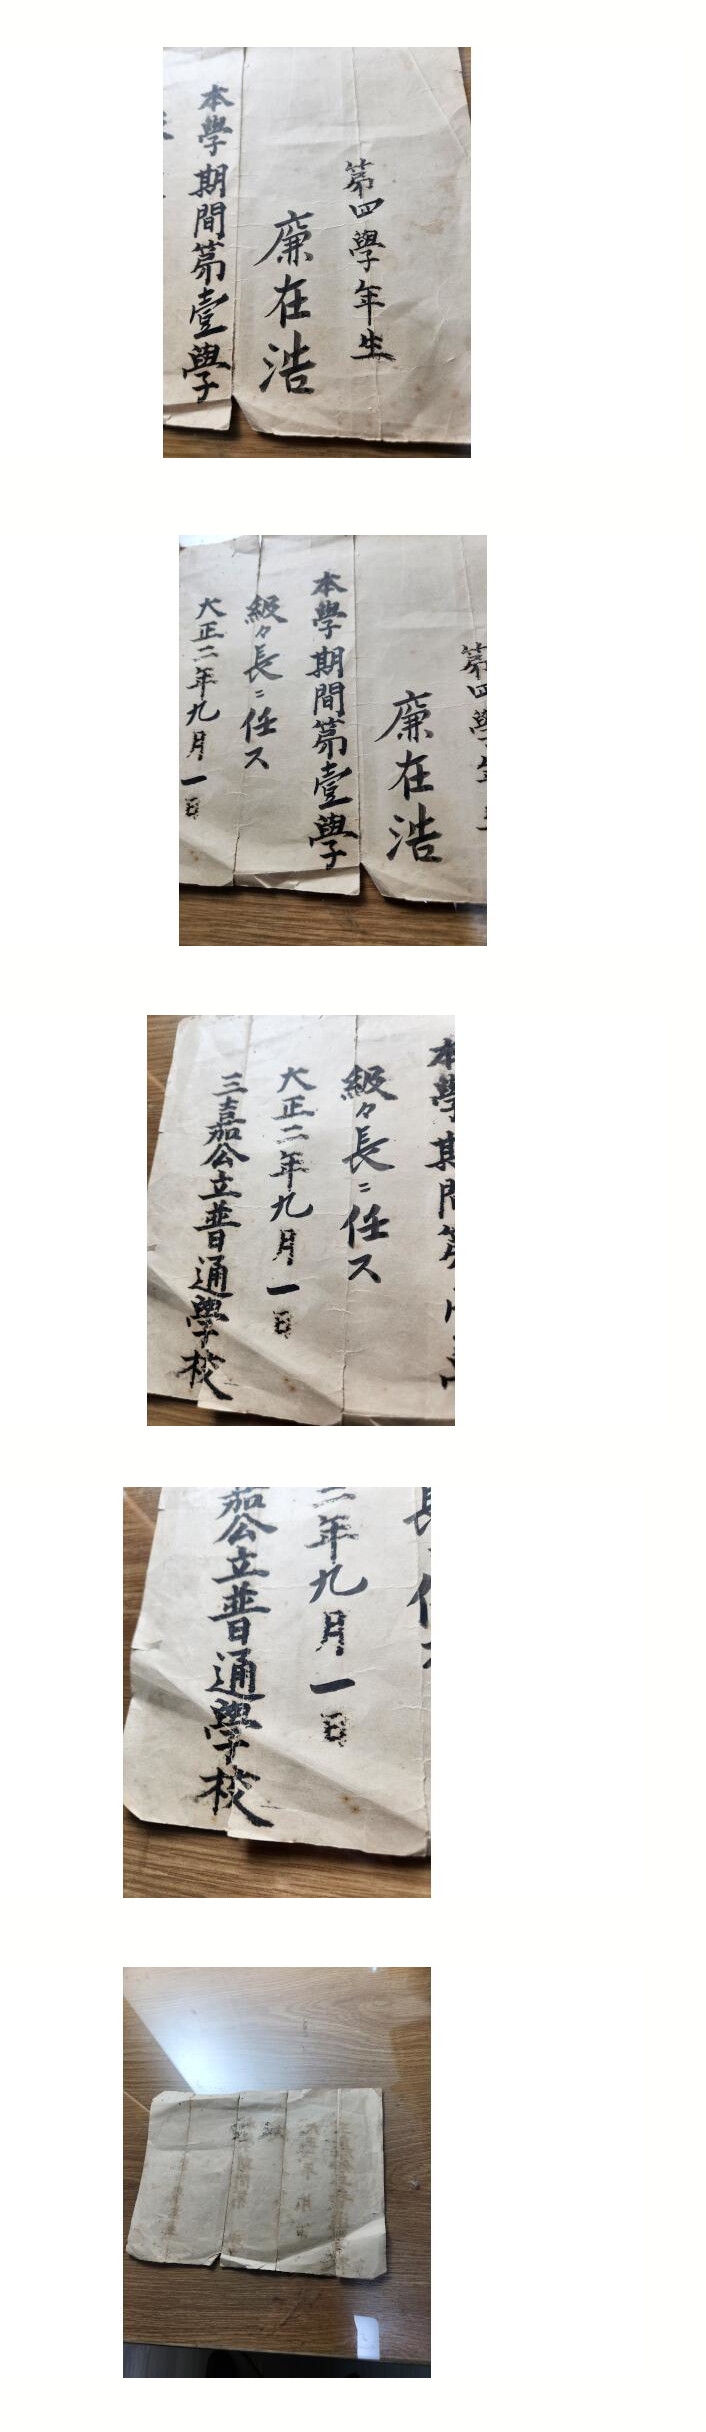 第四學年生
廉在浩
本學期間第壹學
第四學年
廉在浩
本學期間第壹學
級々長ニ任ス
大正二年九月一日
本學期間第
級々長ニ任ス
大正二年九月一日
三嘉公立普通學校
二年九月一日
公立普通學校